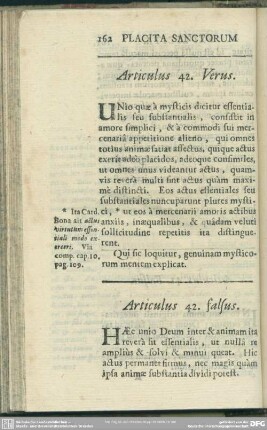 162 PLACITA SANCTORUM
Articulus 42. Verus.
UNio quæ à mysticis dicitur essentia-
lis seu substantialis, consistit in
amore simplici, & à commodi sui mer-
cenariâ appetitione alieno, qui omnes
totius animæ satiat affectus, quique actus
exerit adeò placidos, adeoque consimiles,
ut omnes unus videantur actus, quam-
vis reverâ multi sint actus quàm maxi-
mè distincti. Eos actus essentiales seu
substantiales nuncuparunt plures mysti-
ci, * ut eos à mercenarii amoris actibus
anxiis, inæqualibus, & quâdam veluti
sollicitudine repetitis ita distingue-
rent.
* Ita Card.
Bona ait actus
virtutum essen-
tiali modo ex-
ercere. Viæ
comp. cap. 10.
pag. 109.
Qui sic loquitur, genuinam mystico-
rum mentem explicat.
Articulus 42. falsus.
HÆc unio Deum inter & animam ita
reverâ sit essentialis, ut nullâ re
ampliùs & solvi & minui queat. Hic
actus permanet firmus, nec magis quàm
ipsa animæ substantia dividi potest.